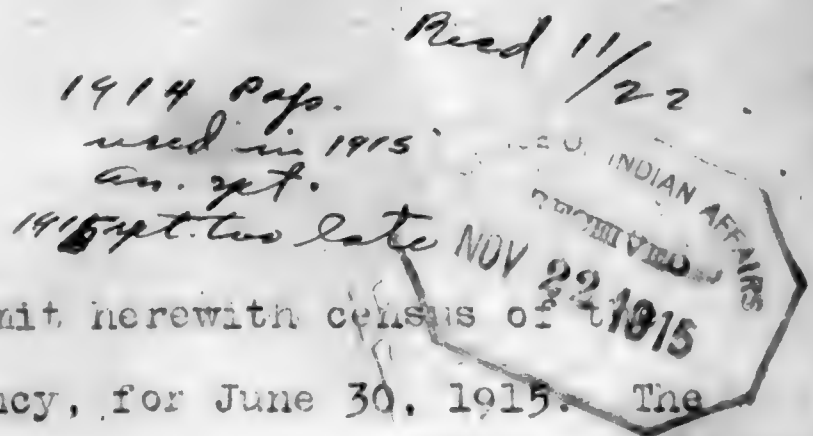 Recd 11/22.
1914 Pop.
used in 1915
an. rpt.
1915 rpt. too late
OF INDIAN AFFAIRS
RECEIVED
NOV 22 1915
mit herewith census of the
ncy, for June 30, 1915. The